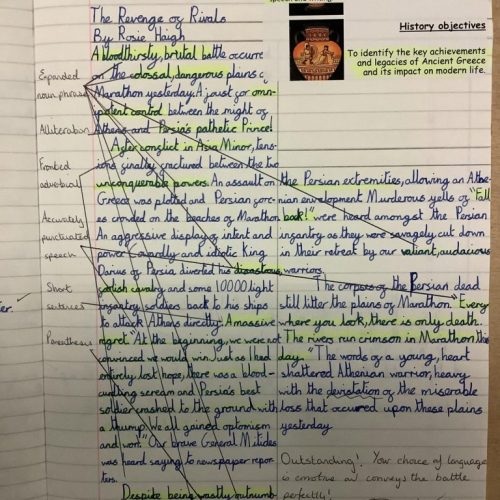 The Revenge of Rivals
By Rosie Haigh
A bloodthirsty, brutal battle occurre
on the colossal, dangerous plains
Marathon yesterday. A joust for omn-
ipotent control between the might of
Athens and Persia's pathetic Prince!
After conflict in Asia Minor, ten-
sions finally fractured between the two
unconquerable powers. An assault on
Greece was plotted and Persian forc-
es crowded on the beaches of Marathon
An aggressive display of intent and
power. Cowardly and idiotic King
Darius of Persia diverted his disastrous
catish cavalry and some 10000 light
infantry soldiers back to his ships
to attack Athens directly. A massive
regret. "At the beginning, we were not
convinced we would win. Just as I had
entirely lost hope, there was a blood-
curdling scream and Persia's best
soldier smashed to the ground with
a thump. We all gained optimism
and won." Our brave General
was heard saying to newspaper repor-
ters.
Despite being vastly outnumb-
Expanded
noun phrase
Alliteration
Fronted
adverbial
Accurately
punctuated
speech
Short
sentences
Parenthesis
History objectives
To identify the key achievements
and legacies of Ancient Greece
and its impact on modern life.
the Persian extremities, allowing an Athe-
nian envelopment. Murderous yells of "Fall
back!" were heard amongst the Persian
infantry as they were savagely cut down
in their retreat by our valiant, audacious
warriors.
The corpses of the Persian dead
still litter the plains of Marathon. "Every
where you look, there is only death.
The rivers run crimson in Marathon this
day." The words of a young, heart
shattered Athenian warrior, heavy
with the devistation of the miserable
loss that occured upon these plains
yesterday
Outstanding! Your choice of language
is emotive and conveys the battle
perfectly!